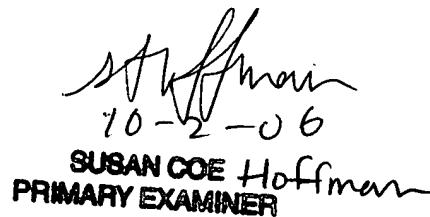 SHoffman
10-2-06
SUSAN COE Hoffman
PRIMARY EXAMINER